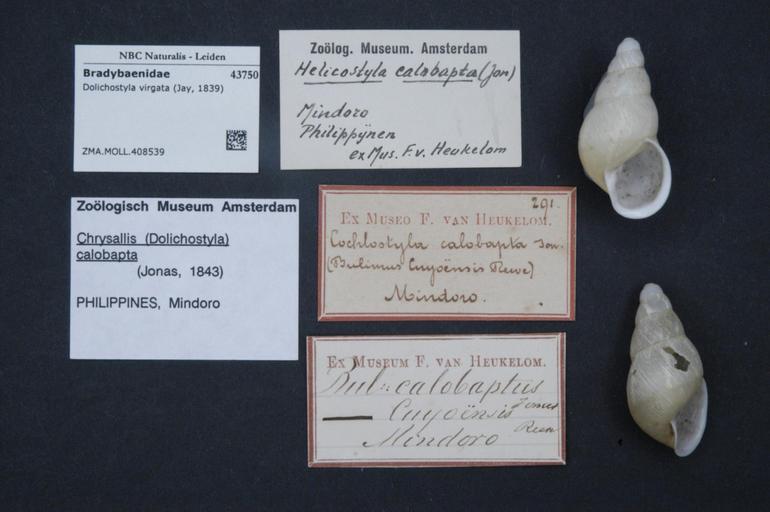 NBC Naturalis - Leiden
Bradybaenidae 43750
Dolichostyla virgata (Jay, 1839)
ZMA.MOLL.408539
Zoölog. Museum. Amsterdam
Helicostyla calobapta (Jon)
Mindoro
Philippijnen
ex Mus. F. v. Heukelom
Zoölogisch Museum Amsterdam
Chrysallis (Dolichostyla)
calobapta
(Jonas, 1843)
PHILIPPINES, Mindoro
291.
Ex Museo F. van Heukelom.
Cochlostyla calobapta Jon.
(Bulimus Cuyoënsis Reeve)
Mindoro.
Ex Museum F. van Heukelom.
Bul:: calobaptus
Jonas
— Cuyoënsis
Reeve
Mindoro